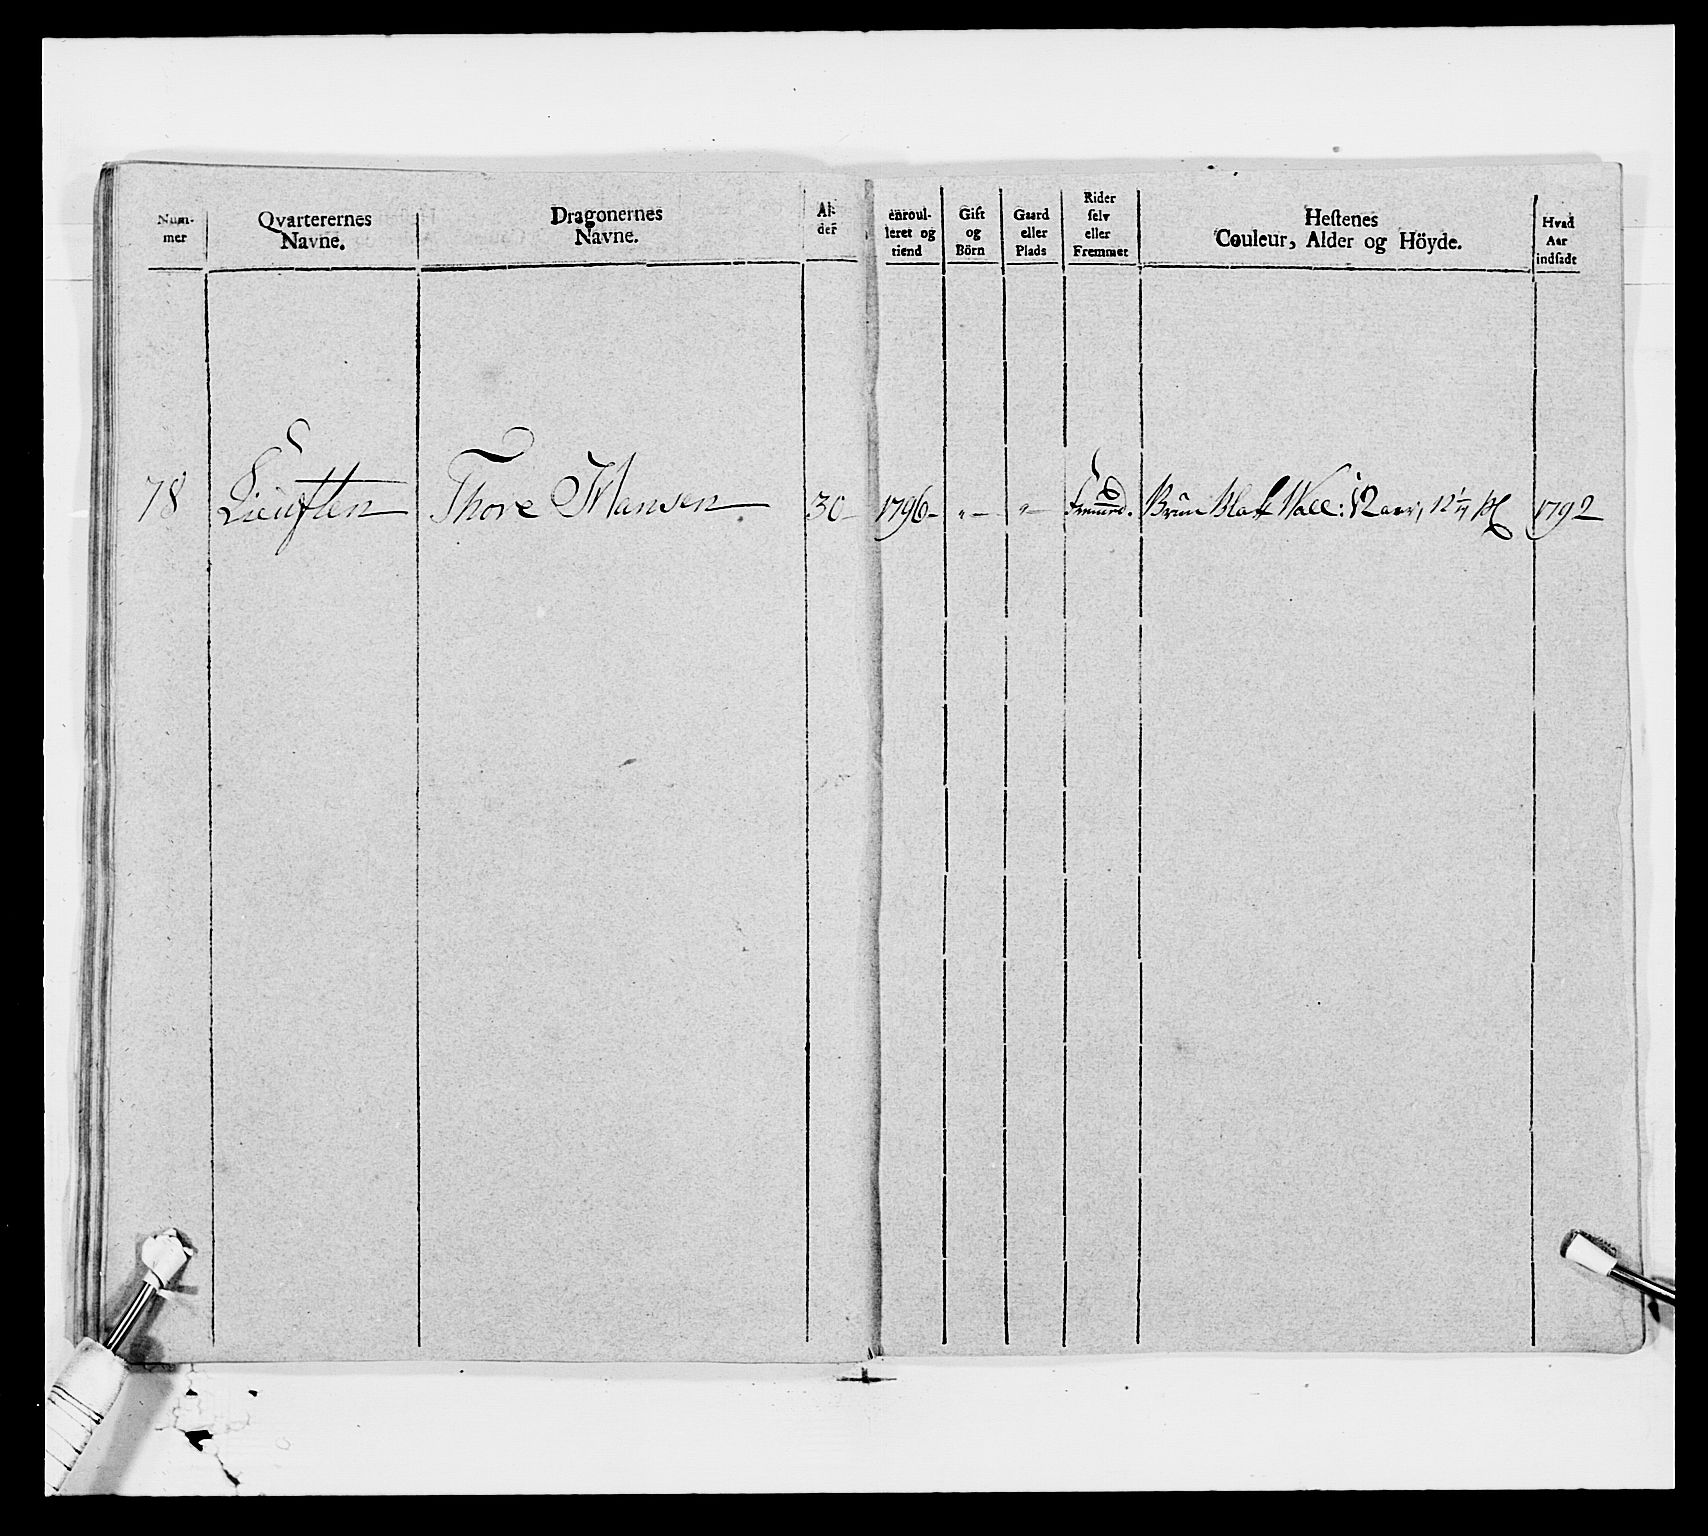 Num-
mer
Qvarterernes
Navne.
Dragonernes
Navne.
Al-
der
enroul-
leret og
tiend
Gift
og
Börn
Gaard
eller
Plads
Rider
selv
eller
Fremmet
Hestenes
Couleur, Alder og Höyde.
Hvad
Aar
indsadt
78 Thore Hansen 30 1796 - „ - „ - Bruun Blak Wall: 12 aar, 12 1792